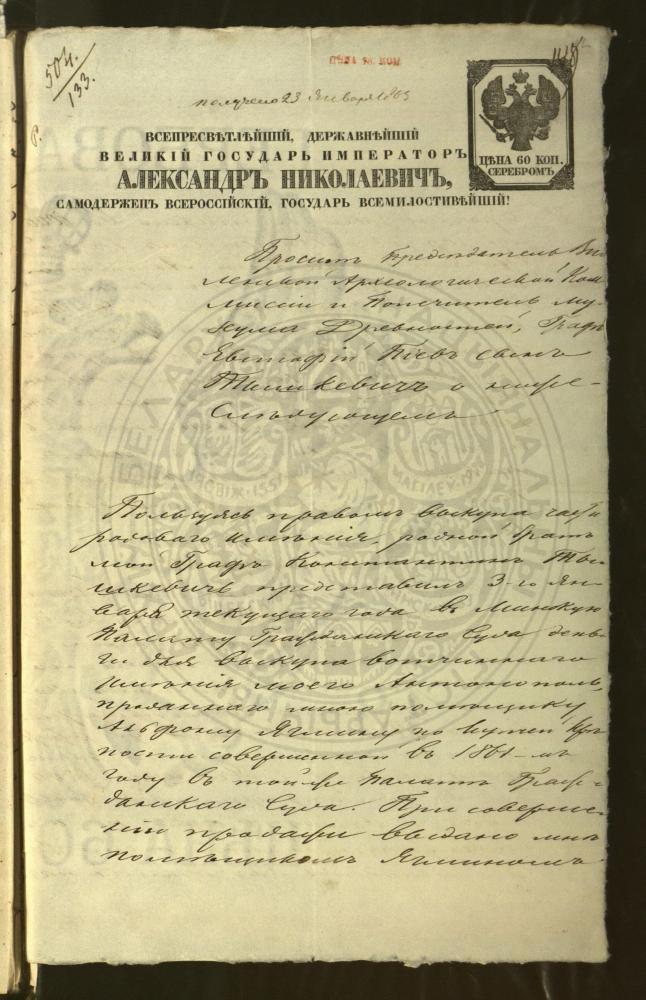 504.
133.
ЦѢНА 60 КОП. СЕРЕБРОМЪ
получено 23 Января 1863
ВСЕПРЕСВѢТЛѢЙШІЙ, ДЕРЖАВНѢЙШІЙ
ВЕЛИКІЙ ГОСУДАРЬ ИМПЕРАТОРЪ
АЛЕКСАНДРЪ НИКОЛАЕВИЧЪ,
САМОДЕРЖЕЦЪ ВСЕРОССІЙСКІЙ, ГОСУДАРЬ ВСЕМИЛОСТИВѢЙШІЙ!
Проситъ Предсѣдатель Ви
ленской Археологической Ком
миссіи и Попечитель Му
зеума Древностей, Графъ
Евстафій Піевъ сынъ
Тышкевичъ о ниже-
слѣдующемъ
Пользуясь правомъ выкупа части
родоваго имѣнія, родной братъ
мой Графъ Константинъ Ты
шкевичъ представилъ 3-го Ян
варя текущаго года въ Минскую
Палату Гражданскаго Суда день
ги для выкупа вотчиннаго
имѣнія моего Антонополь,
проданнаго мною помѣщику
Ягмину по купчей крѣ
пости совершенной въ 1861-мъ
году въ той же Палатѣ Граж-
данскаго Суда. При соверше
ніи продажи выдано мнѣ
помѣщикомъ Ягминомъ